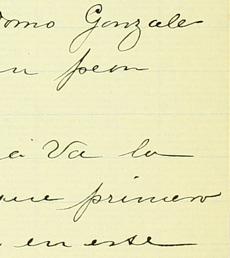 domo Gonzale
un peon
a Va la
que primero
en este